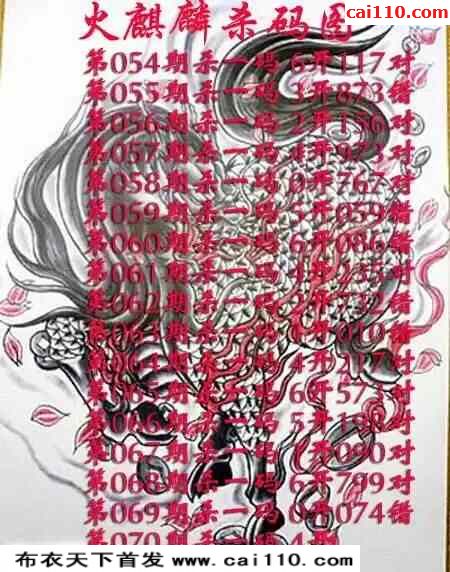 cai110.com
火麒麟杀码图
第054期杀一码 6开117对
第055期杀一码 3开873错
第056期杀一码 2开156对
第057期杀一码 4开973对
第058期杀一码 0开767对
第059期杀一码 5开059错
第060期杀一码 6开086错
第061期杀一码 4开235对
第062期杀一码 开732错
第063期杀一码 开010错
第064期杀一码 4开217对
第065期杀一码 6开57
第066期杀一码 5开1 对
第067期杀一码 开090对
第068期杀一码 6开799对
第069期杀一码 0开074错
第070期杀一码 4
布衣天下首发 www.cai110.com